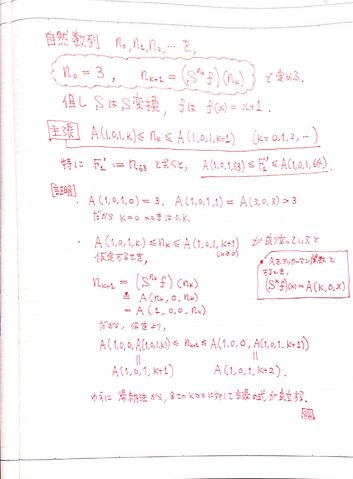 自然数列 n₀, n₁, n₂, … を,
n₀ = 3 , n_{k+1} = (S^{n_k} f)(n_k) で定める.
但し S は S変換, f は f(x) = x+1 .
主張 A(1,0,1,k) ≤ n_k ≤ A(1,0,1,k+1) (k=0,1,2,…)
特に F₁' := n₆₃ とおくと, A(1,0,1,63) ≤ F₁' ≤ A(1,0,1,64).
証明
・ A(1,0,1,0) = 3, A(1,0,1,1) = A(3,0,3) > 3
だから k=0 のときは O.K.
・ A(1,0,1,k) ≤ n_k ≤ A(1,0,1,k+1) が成り立っていると
仮定するとき, (k≥0)
n_{k+1} = (S^{n_k} f)(n_k)
= A(n_k, 0, n_k)
= A(1,0,0,n_k)
• Aをアッカーマン関数と
するとき,
(S^k f)(x) = A(k,0,x)
だから, 仮定より,
A(1,0,0,A(1,0,1,k)) ≤ n_{k+1} ≤ A(1,0,0,A(1,0,1,k+1))
|| ||
A(1,0,1,k+1) A(1,0,1,k+2) .
ゆえに 帰納法から, 全ての k≥0 に対して主張の式が成立する.